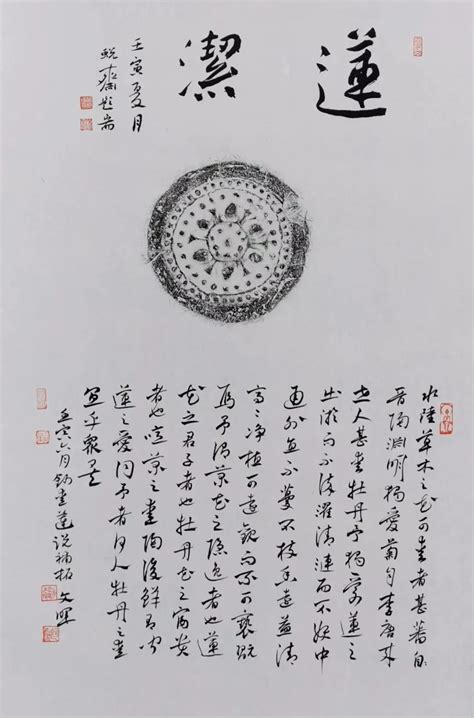 蓮潔
壬寅夏月
齋題耑
水陸草木之花可愛者甚蕃自
晉陶淵明獨愛菊自李唐來
世人甚愛牡丹予獨愛蓮之
出淤而不染濯清漣而不妖中
通外直不蔓不枝香遠益清
亭々淨植可遠觀而不可褻玩
焉予謂菊花之隱逸者也蓮
花之君子者也牡丹花之富貴
者也噫菊之愛陶後鮮有聞
蓮之愛同予者何人牡丹之愛
宜乎眾矣
壬寅六月鈔愛蓮說補拓 文